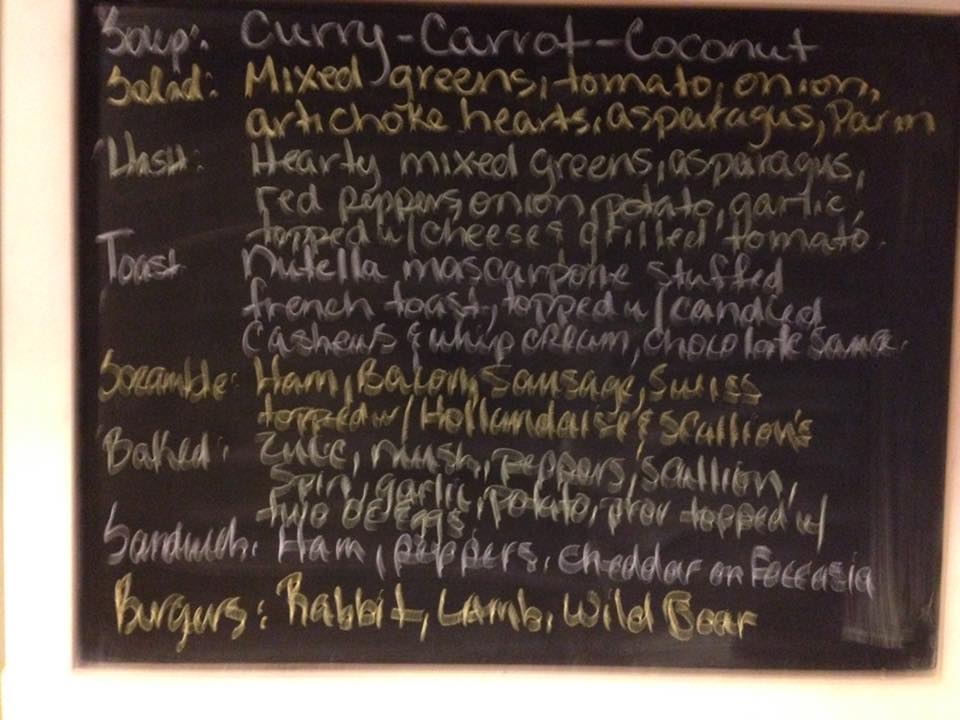 Soup: Curry-Carrot-Coconut
Salad: Mixed greens, tomato, onion,
artichoke hearts, asparagus, Parm
Hash: Hearty mixed greens, asparagus,
red peppers onion, potato, garlic,
topped w/ cheeses grilled tomato.
Toast Nutella mascarpone stuffed
french toast, topped w/ candied
Cashews & whip cream, chocolate sauce.
Scramble: Ham, Bacon, Sausage, Swiss
topped w/ Hollandaise & Scallion's
Baked: Zucc, mush, peppers, scallion,
Spin, garlic, potato, prov topped w/
two oe eggs
Sandwich: Ham, peppers, cheddar on Foccasia
Burgers: Rabbit, Lamb, Wild Boar